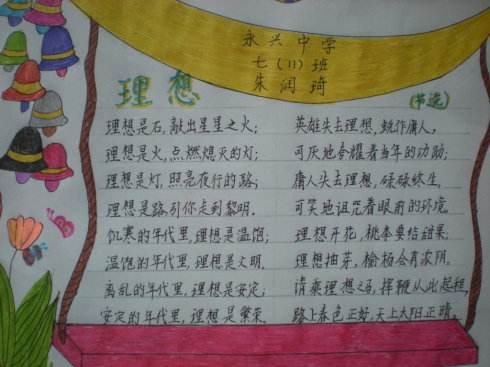 永兴中学
七(11)班
朱润琦
理想
(节选)
理想是石,敲出星星之火;
理想是火,点燃熄灭的灯;
理想是灯,照亮夜行的路;
理想是路,引你走到黎明。
饥寒的年代里,理想是温饱;
温饱的年代里,理想是文明。
离乱的年代里,理想是安定;
安定的年代里,理想是繁荣。
英雄失去理想,蜕作庸人,
可厌地夸耀着当年的功勋;
庸人失去理想,碌碌终生,
可笑地诅咒着眼前的环境。
理想开花,桃李要结甜果;
理想抽芽,榆杨会有浓阴。
请乘理想之马,挥鞭从此起程,
路上春色正好,天上太阳正晴。